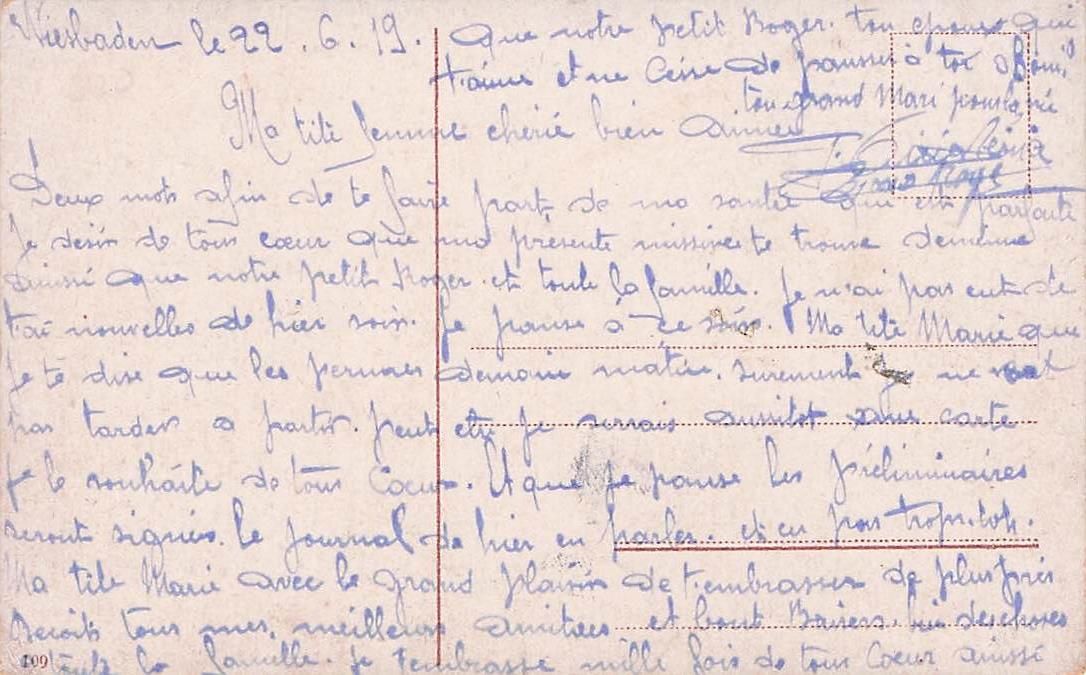 Wiesbaden le 22. 6. 19.
Ma tite femme cherie bien aimee
Deux mots afin de te faire part de ma santée qui est parfaite
Je desir de tous cœur que ma presente missive te trouve de même
ainssi que notre petit Roger. et toute la famille. Je n'ai pas eut de
tai nouvelles de hier soir. Je pansse à ce soir. Ma tite Marie que
je te dire que les demain matin. surement je ne
pas tarder a partir. peut etre je serrais aussitot carte
je le souhaite de tous Coeur. Et que je pansse les préliminaires
seront signées. le journal de hier en parler. et en pas trop. tot.
Ma tite Marie avec le grand plaisir de t'embrasser de plus près
Recoit tous mes. meilleurs amitiees et bont Baisers. bien des choses
a toute la famille. Je t'embrasse mille fois de tous Coeur ainssi
que notre petit Roger. ton epoux qui
t'aime et ne Cesse de pansser à toi
ton grand Mari pour la vie
109